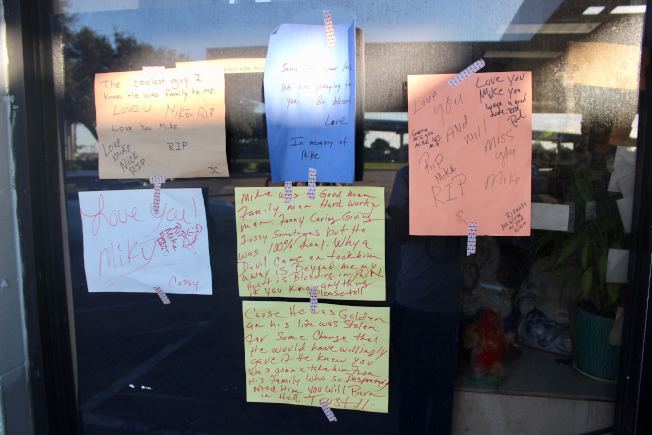 The coolest guy I
know. He was family to me.
LOVE U MIKE RIP
Love You Mike
RIP
Love
Mike
Nick
RIP
Sorry your
We are praying for
you. Be blessed
Love
In memory of
Mike
Love
you
AND
will
MISS
you
Mike
RIP
Mike
RIP
Love You
Mike You
was a good
dude.
Love you!
Miky
Cassy
Mike was a Good man
Family man Hard workn
man Funny Caring Giving
Fussy Sometimes but He
was 100% Real. Why a
Devil Came an took him
away is Beyond me my
Heart is Bleeding
If you know anything
Please tell
Cause He was Golden
an his life was Stolen
for Some Change that
He would have willingly
gave if He knew you
was gonna take him from
His Family who so Desperatly
Need Him. You will Burn
in Hell. TRUST!!